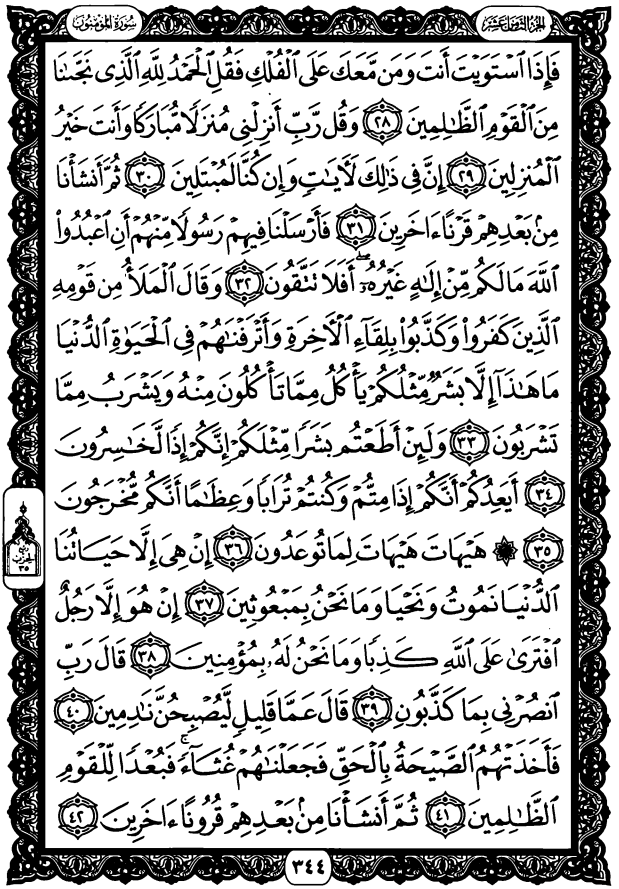 سُورَةُ المُؤْمِنُونَ
الجُزْءُ الثَّامِنَ عَشَرَ
فَإِذَا ٱسْتَوَيْتَ أَنتَ وَمَن مَّعَكَ عَلَى ٱلْفُلْكِ فَقُلِ ٱلْحَمْدُ لِلَّهِ ٱلَّذِى نَجَّىٰنَا
مِنَ ٱلْقَوْمِ ٱلظَّـٰلِمِينَ ٢٨ وَقُل رَّبِّ أَنزِلْنِى مُنزَلًا مُّبَارَكًا وَأَنتَ خَيْرُ
ٱلْمُنزِلِينَ ٢٩ إِنَّ فِى ذَٰلِكَ لَـَٔايَـٰتٍ وَإِن كُنَّا لَمُبْتَلِينَ ٣٠ ثُمَّ أَنشَأْنَا
مِنۢ بَعْدِهِمْ قَرْنًا ءَاخَرِينَ ٣١ فَأَرْسَلْنَا فِيهِمْ رَسُولًا مِّنْهُمْ أَنِ ٱعْبُدُوا۟
ٱللَّهَ مَا لَكُم مِّنْ إِلَـٰهٍ غَيْرُهُۥٓ ۖ أَفَلَا تَتَّقُونَ ٣٢ وَقَالَ ٱلْمَلَأُ مِن قَوْمِهِ
ٱلَّذِينَ كَفَرُوا۟ وَكَذَّبُوا۟ بِلِقَآءِ ٱلْـَٔاخِرَةِ وَأَتْرَفْنَـٰهُمْ فِى ٱلْحَيَوٰةِ ٱلدُّنْيَا
مَا هَـٰذَآ إِلَّا بَشَرٌ مِّثْلُكُمْ يَأْكُلُ مِمَّا تَأْكُلُونَ مِنْهُ وَيَشْرَبُ مِمَّا
تَشْرَبُونَ ٣٣ وَلَئِنْ أَطَعْتُم بَشَرًا مِّثْلَكُمْ إِنَّكُمْ إِذًا لَّخَـٰسِرُونَ
٣٤ أَيَعِدُكُمْ أَنَّكُمْ إِذَا مِتُّمْ وَكُنتُمْ تُرَابًا وَعِظَـٰمًا أَنَّكُم مُّخْرَجُونَ
٣٥ ۞ هَيْهَاتَ هَيْهَاتَ لِمَا تُوعَدُونَ ٣٦ إِنْ هِىَ إِلَّا حَيَاتُنَا
ٱلدُّنْيَا نَمُوتُ وَنَحْيَا وَمَا نَحْنُ بِمَبْعُوثِينَ ٣٧ إِنْ هُوَ إِلَّا رَجُلٌ
ٱفْتَرَىٰ عَلَى ٱللَّهِ كَذِبًا وَمَا نَحْنُ لَهُۥ بِمُؤْمِنِينَ ٣٨ قَالَ رَبِّ
ٱنصُرْنِى بِمَا كَذَّبُونِ ٣٩ قَالَ عَمَّا قَلِيلٍ لَّيُصْبِحُنَّ نَـٰدِمِينَ ٤٠
فَأَخَذَتْهُمُ ٱلصَّيْحَةُ بِٱلْحَقِّ فَجَعَلْنَـٰهُمْ غُثَآءً ۚ فَبُعْدًا لِّلْقَوْمِ
ٱلظَّـٰلِمِينَ ٤١ ثُمَّ أَنشَأْنَا مِنۢ بَعْدِهِمْ قُرُونًا ءَاخَرِينَ ٤٢
٣٤٤
ربع
الحزب
٣٥